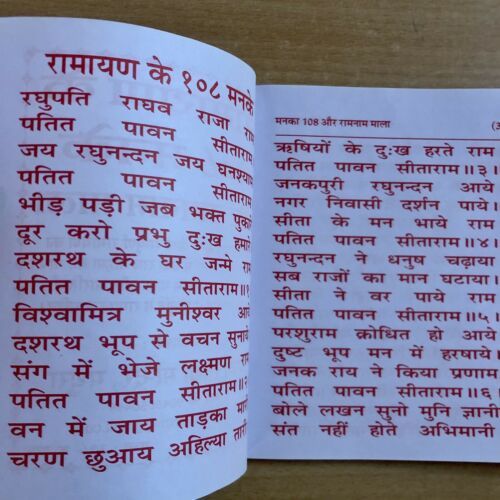 रामायण के १०८ मनके
रघुपति राघव राजा राम
पतित पावन सीताराम
जय रघुनन्दन जय घनश्याम
पतित पावन सीताराम
भीड़ पड़ी जब भक्त पुकारे
दूर करो प्रभु दुःख हमारे
दशरथ के घर जन्मे राम
पतित पावन सीताराम॥१
विश्वामित्र मुनीश्वर आये
दशरथ भूप से वचन सुनाये
संग में भेजे लक्ष्मण राम
पतित पावन सीताराम॥२
वन में जाय ताड़का
चरण छुआय अहिल्या
मनका 108 और रामनाम माला
ऋषियों के दुःख हरते राम
पतित पावन सीताराम॥३।
जनकपुरी रघुनन्दन आये
नगर निवासी दर्शन पाये।
सीता के मन भाये राम
पतित पावन सीताराम॥४।
रघुनन्दन ने धनुष चढ़ाया
सब राजों का मान घटाया।
सीता ने वर पाये राम
पतित पावन सीताराम॥५।
परशुराम क्रोधित हो आये
दुष्ट भूप मन में हरषाये।
जनक राय ने किया प्रणाम
पतित पावन सीताराम॥६।
बोले लखन सुनो मुनि ज्ञानी
संत नहीं होते अभिमानी